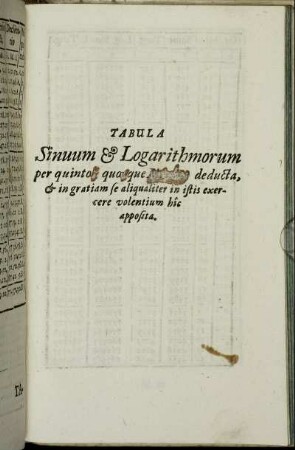 TABULA
Sinuum & Logarithmorum
per quintos quosque deducta,
& in gratiam se aliqualiter in istis exer-
cere volentium hîc
apposita.